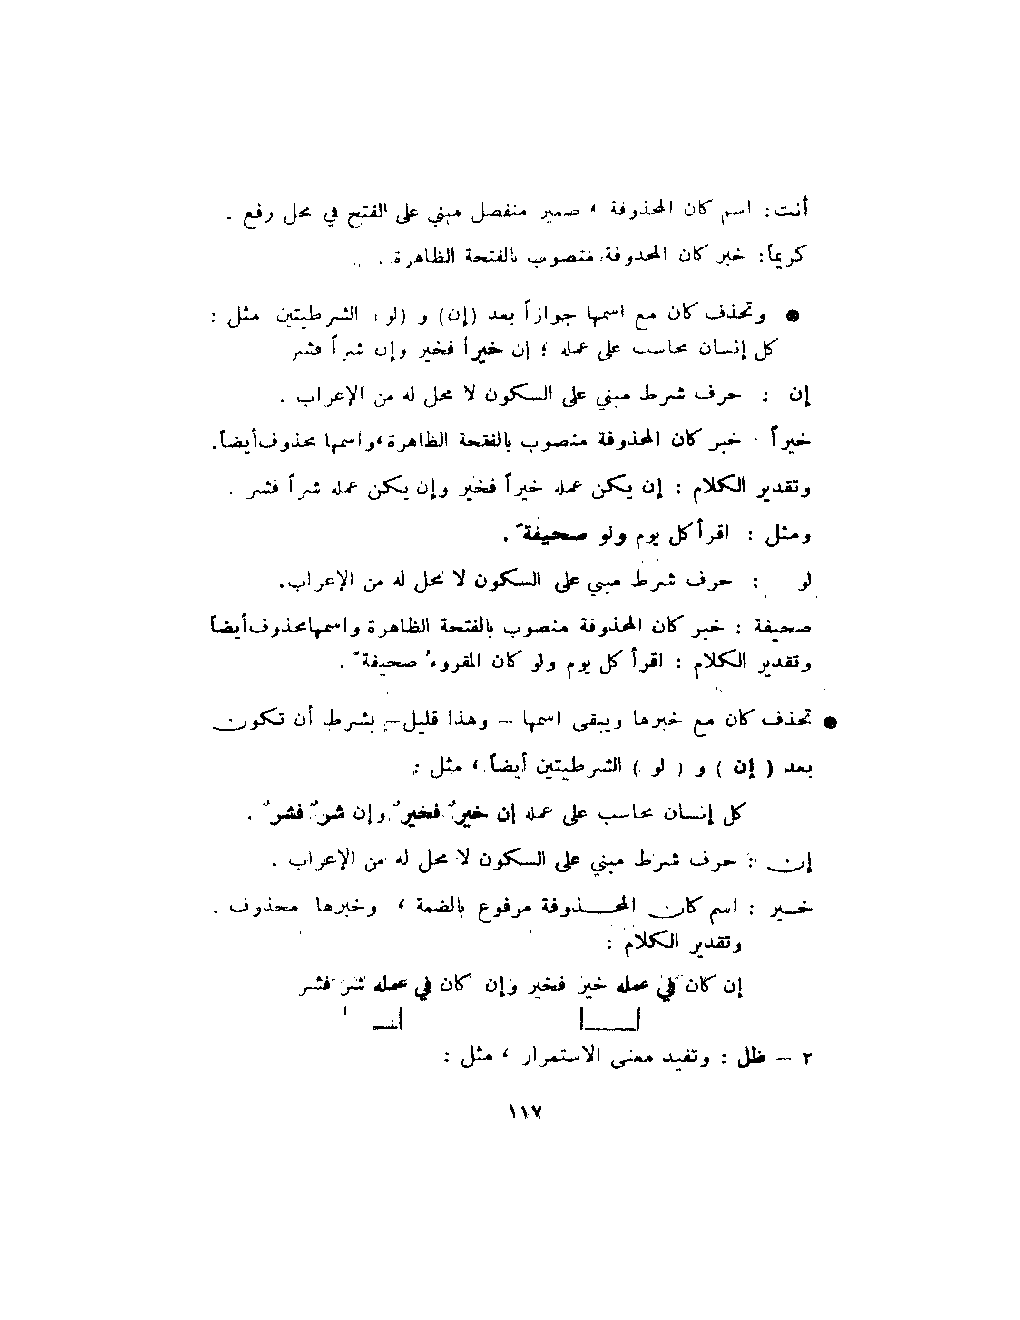 أنت: اسم كان المحذوفة ، ضمير منفصل مبني على الفتح في محل رفع .
كريماً: خبر كان المحذوفة، منصوب بالفتحة الظاهرة .
● وتحذف كان مع اسمها جوازاً بعد (إن) و (لو) الشرطيتين مثل :
كل إنسان محاسب على عمله ؛ إن خيراً فخير وإن شراً فشر
إن : حرف شرط مبني على السكون لا محل له من الإعراب .
خيراً : خبر كان المحذوفة منصوب بالفتحة الظاهرة ، واسمها محذوف أيضاً.
وتقدير الكلام : إن يكن عمله خيراً فخير وإن يكن عمله شراً فشر .
ومثل : اقرأ كل يوم ولو صحيفةً .
لو : حرف شرط مبني على السكون لا محل له من الإعراب.
صحيفة : خبر كان المحذوفة منصوب بالفتحة الظاهرة واسمها محذوف أيضاً
وتقدير الكلام : اقرأ كل يوم ولو كان المقروءُ صحيفةً .
● تحذف كان مع خبرها ويبقى اسمها – وهذا قليل – بشرط أن تكون
بعد ( إن ) و ( لو ) الشرطيتين أيضاً ، مثل :
كل إنسان محاسب على عمله إن خيرٌ فخيرٌ وإن شرٌ فشرٌ .
إن : حرف شرط مبني على السكون لا محل له من الإعراب .
خير : اسم كان المحذوفة مرفوع بالضمة ، وخبرها محذوف .
وتقدير الكلام :
إن كان في عمله خير فخير وإن كان في عمله شر فشر
٢ – ظل : وتفيد معنى الاستمرار ، مثل :
١١٧